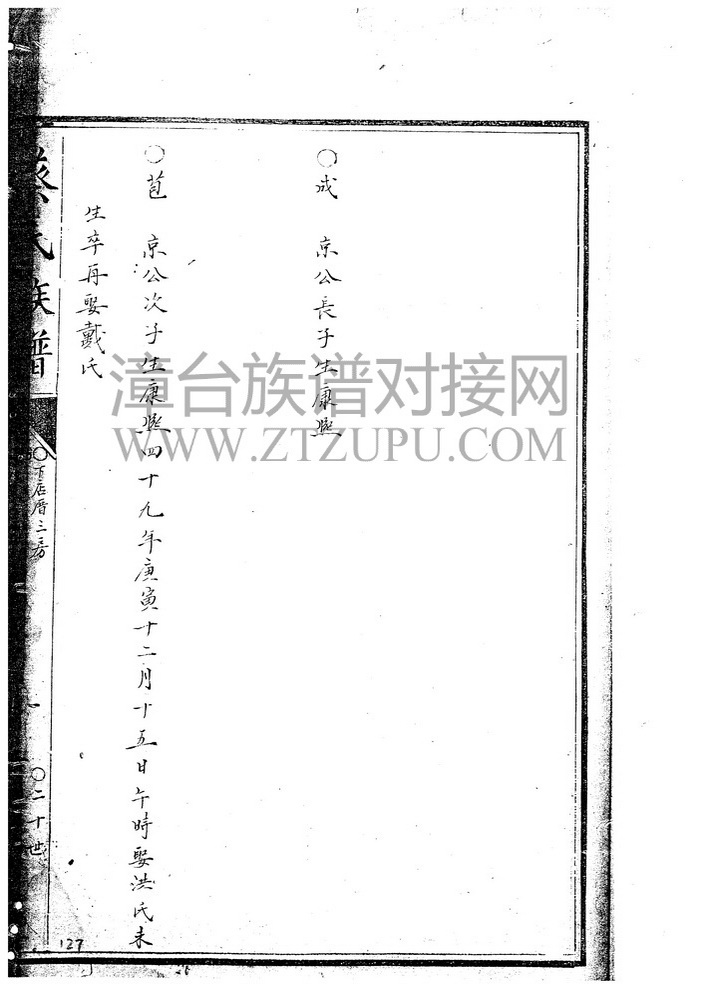 〇成　京公長子生康熙
〇苞　京公次子生康熙四十九年庚寅十二月十五日午時娶洪氏未
生卒再娶戴氏
蔡氏族譜
〇下店厝三房
〇二十世
127
漳台族谱对接网
WWW.ZTZUPU.COM